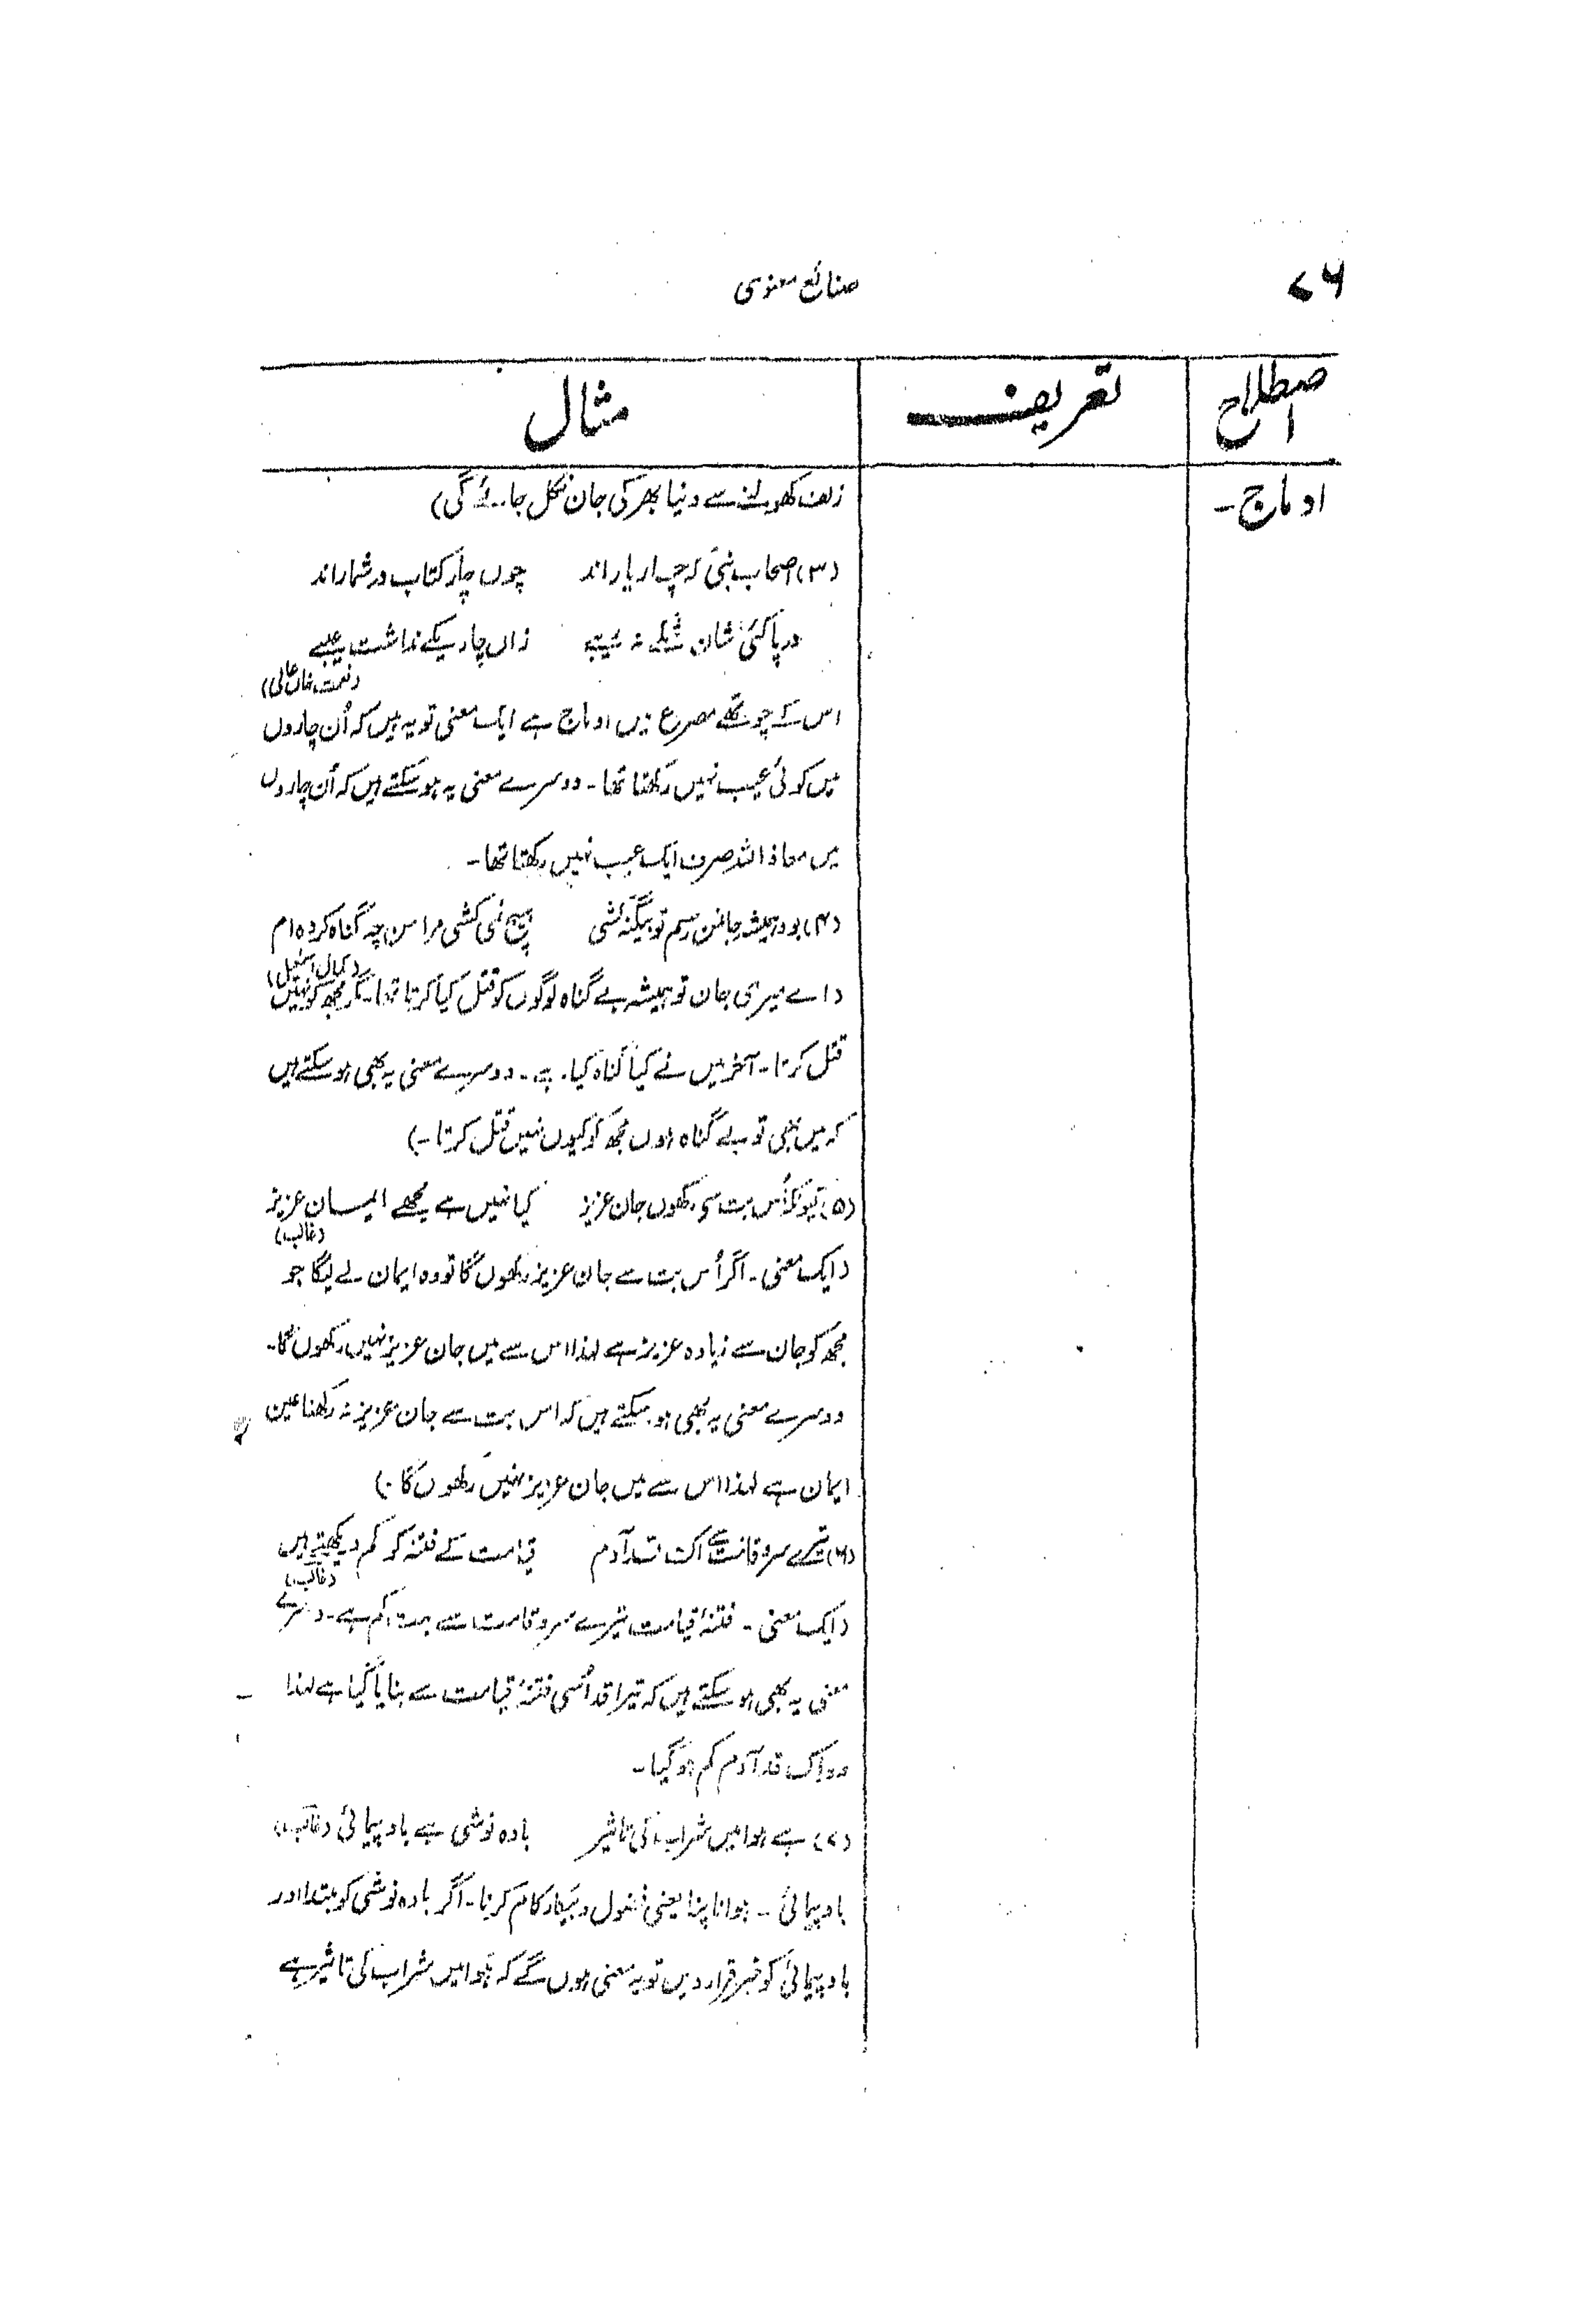 ۷۶
صنائع معنوی
اصطلاح تعریف مثال
ادماج - زلف کھولنے سے دنیا بھر کی جان نکل جائے گی)
(۳) اصحاب نبی کہ چار یار اند چوں چار کتاب در شمار اند
در پاکئ شان شکے نہ ریبے زاں چار یکے نداشت عیبے
(نعمت خان عالی)
اس کے چوتھے مصرع میں ادماج ہے ایک معنی تو یہ ہیں کہ اُن چاروں
میں کوئی عیب نہیں رکھتا تھا - دوسرے معنی یہ ہو سکتے ہیں کہ اُن چاروں
میں معاذ اللہ صرف ایک عیب نہیں رکھتا تھا -
(۴) بود ہمیشہ جان من رسم تو بیگنہ کشی ہیچ نمی کشی مرا من چہ گناہ کردہ ام
(کمال اسمٰعیل)
(اے میری جان تو ہمیشہ بے گناہ لوگوں کو قتل کیا کرتا تھا - مگر مجھ کو نہیں
قتل کرتا - آخر میں نے کیا گناہ کیا ہے - دوسرے معنی یہ بھی ہو سکتے ہیں
کہ میں بھی تو بے گناہ ہوں مجھ کو کیوں نہیں قتل کرتا -)
(۵) کیونکر اُس بت سے رکھوں جان عزیز کیا نہیں ہے مجھے ایمان عزیز
(غالب)
(ایک معنی - اگر اُس بت سے جان عزیز رکھوں گا تو وہ ایمان لے لیگا جو
مجھ کو جان سے زیادہ عزیز ہے لہٰذا اس سے میں جان عزیز نہیں رکھوں گا -
دوسرے معنی یہ بھی ہو سکتے ہیں کہ اس بت سے جان عزیز نہ رکھنا عین
ایمان ہے لہٰذا اس سے میں جان عزیز نہیں رکھوں گا -)
(۶) تیرے سرو قامت سے اک قد آدم قیامت کے فتنہ کو کم دیکھتے ہیں
(غالب)
(ایک معنی - فتنۂ قیامت تیرے سرو قامت سے بہت کم ہے - دوسرے
معنی یہ بھی ہو سکتے ہیں کہ تیرا قد اُسی فتنۂ قیامت سے بنایا گیا ہے لہٰذا
وہ اک قد آدم کم ہو گیا -
(۷) ہے ہوا میں شراب کی تاثیر بادہ نوشی ہے باد پیمائی (غالب)
باد پیمائی - ہوا ناپنا یعنی فضول و بیکار کام کرنا - اگر بادہ نوشی کو مبتدا اور
باد پیمائی کو خبر قرار دیں تو یہ معنی ہوں گے کہ ہوا میں شراب کی تاثیر ہے